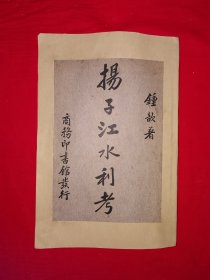 鍾歆著
揚子江水利考
商務印書館發行